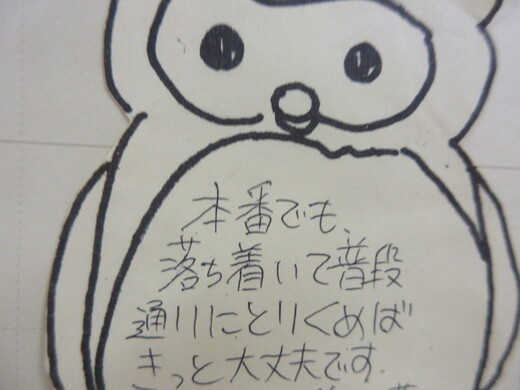 本番でも、
落ち着いて普段
通りにとりくめば
きっと大丈夫です.